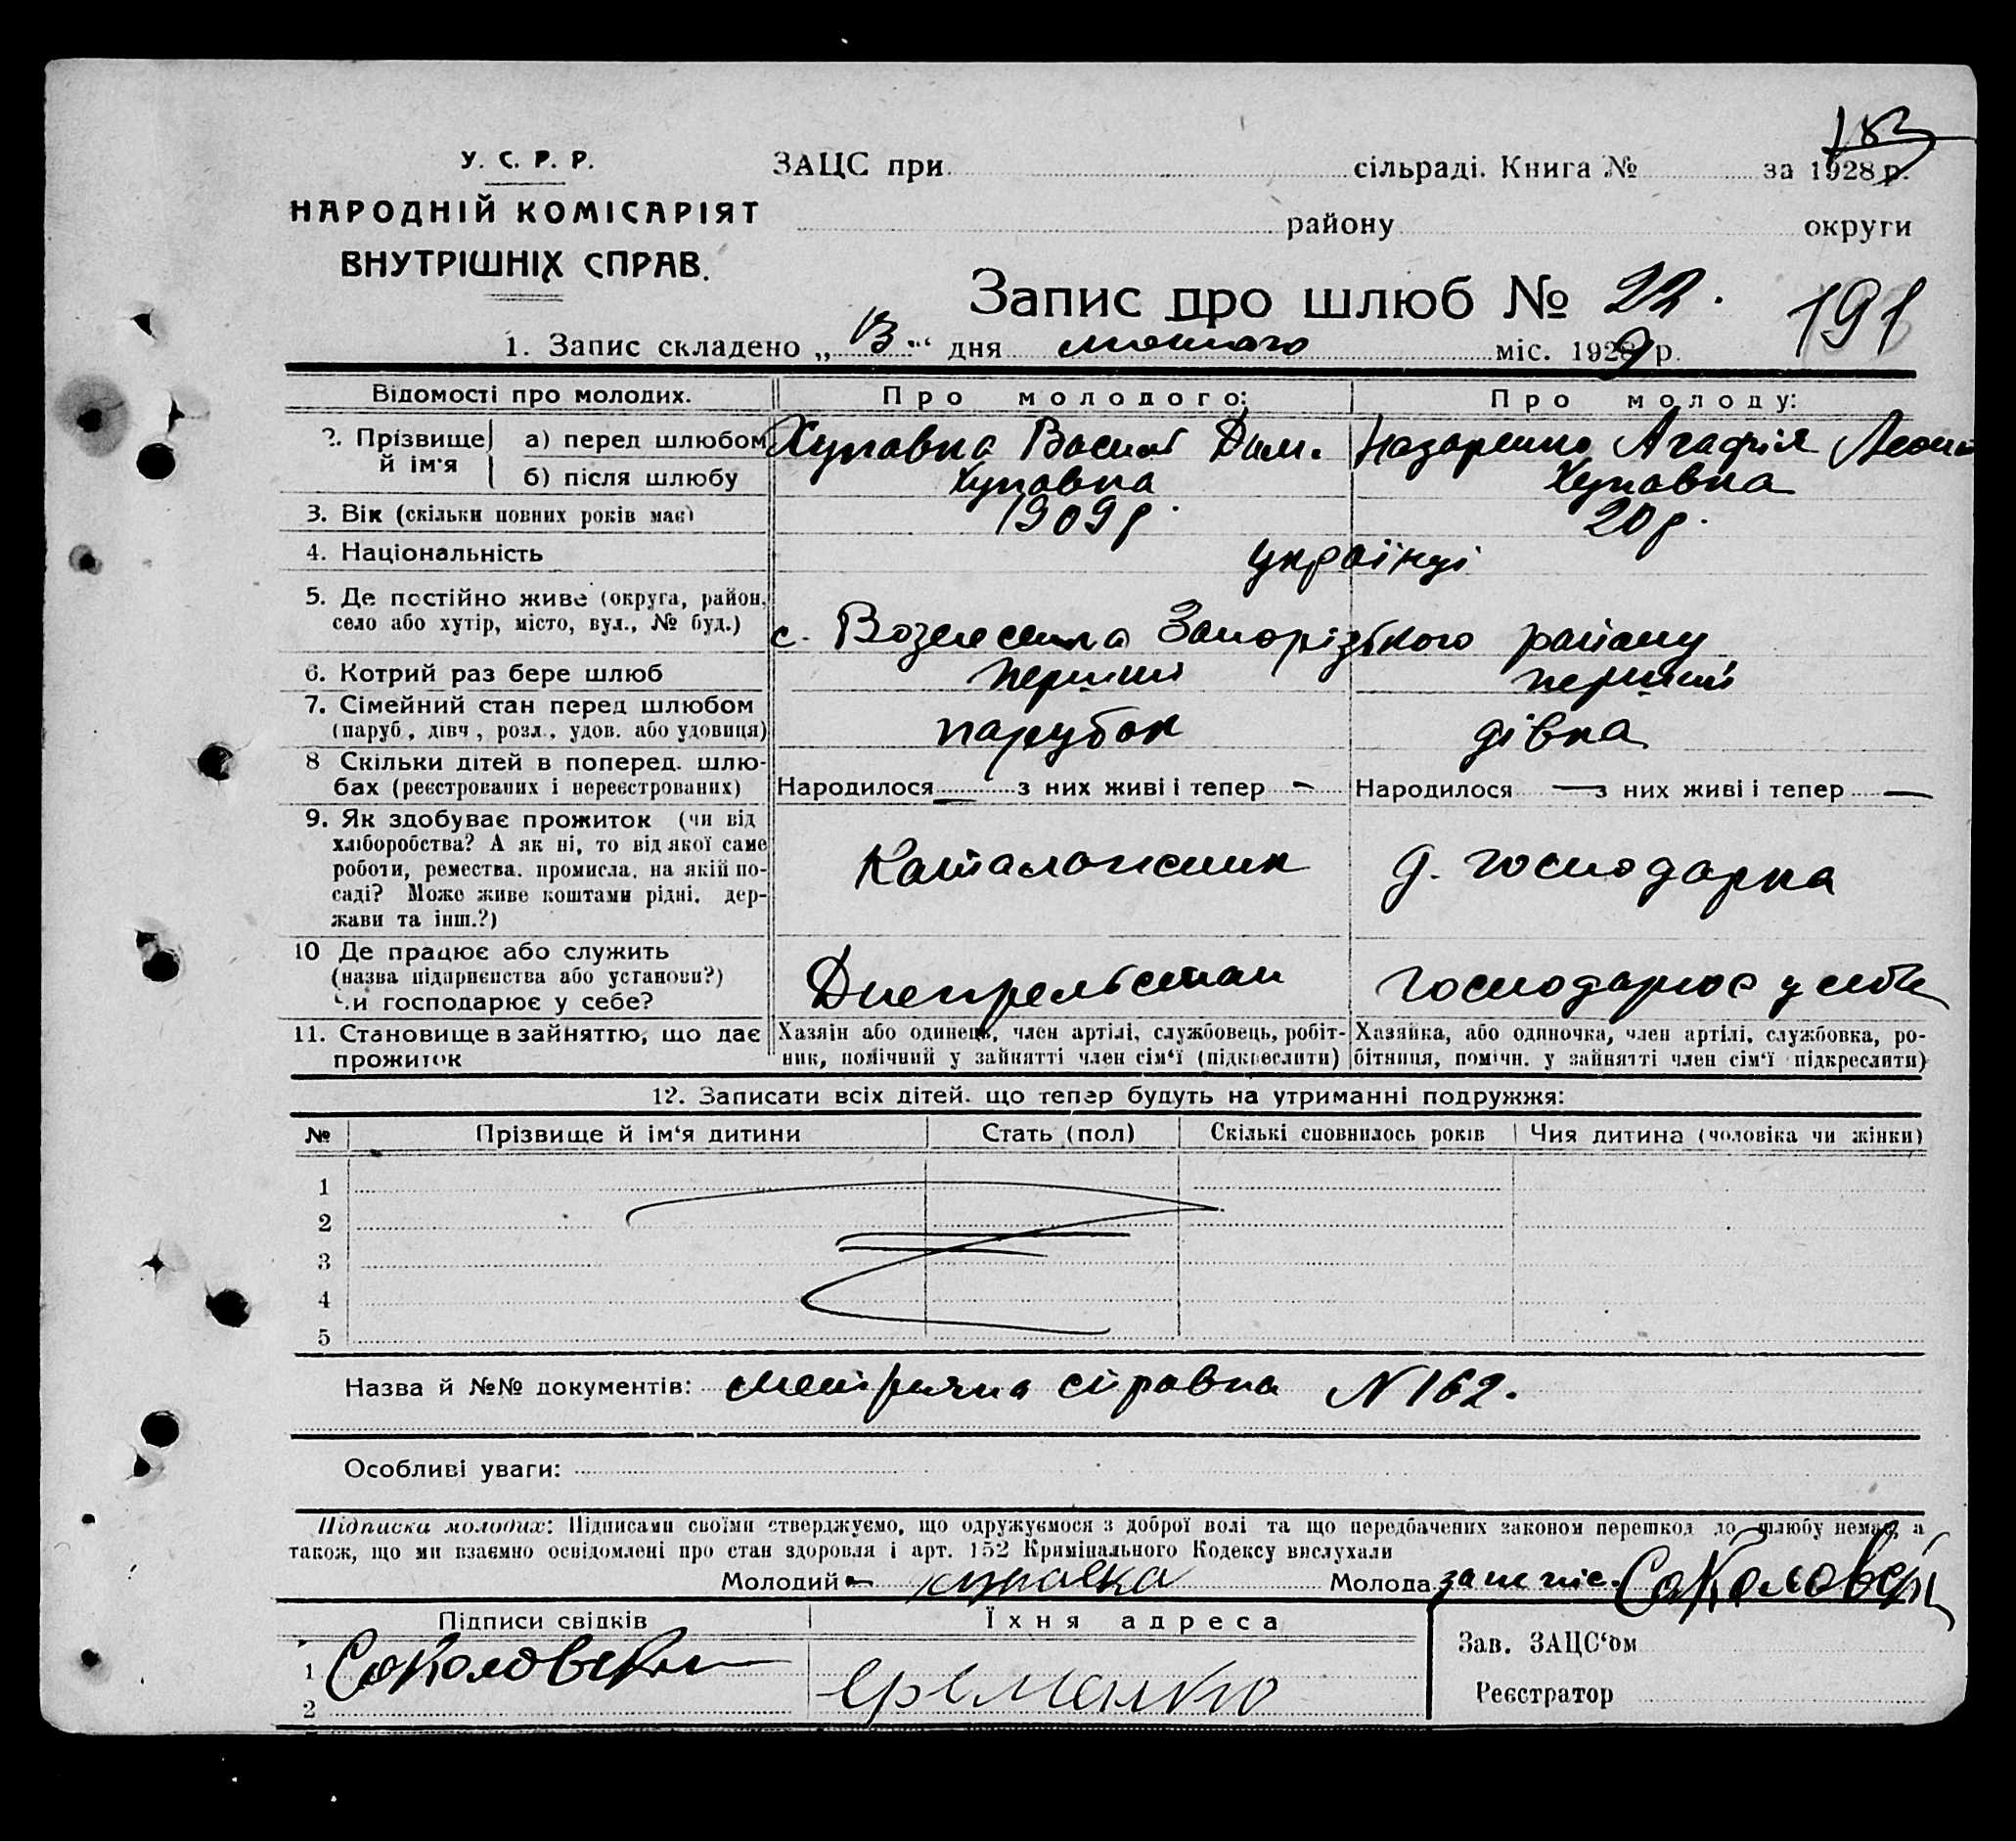 183
У. С. Р. Р.
НАРОДНІЙ КОМІСАРІЯТ
ВНУТРІШНІХ СПРАВ.
ЗАЦС при сільраді. Книга № за 1928 р.
району округи
Запис про шлюб № 22. 191
1. Запис складено „13“ дня лютого міс. 1929 р.
Відомості про молодих. Про молодого: Про молоду:
2. Прізвище й ім'я а) перед шлюбом Хупавка Василь Дем. Назаренко Агафія Леонт
б) після шлюбу Хупавка Хупавка
3. Вік (скільки повних років має) 1909 р. 20 р.
4. Національність українці
5. Де постійно живе (округа, район, село або хутір, місто, вул., № буд.) с. Вознесенка Запорізького району
6. Котрий раз бере шлюб перший перший
7. Сімейний стан перед шлюбом (паруб., дівч., розл., удов. або удовиця) парубок дівка
8 Скільки дітей в поперед. шлюбах (реєстрованих і нереєстрованих) Народилося — з них живі і тепер — Народилося — з них живі і тепер —
9. Як здобуває прожиток (чи від хліборобства? А як ні, то від якої саме роботи, ремества, промисла, на якій посаді? Може живе коштами рідні, держави та інш.?) д. господарка
10 Де працює або служить (назва підприємства або установи?) Чи господарює у себе? Днепрельстан господарює у себе
11. Становище в зайняттю, що дає прожиток Хазяін або одинець, член артілі, службовець, робітник, помічний у зайнятті член сім‘ї (підкреслити) Хазяйка, або одиночка, член артілі, службовка, робітниця, помічн. у зайнятті член сім‘ї підкреслити)
12. Записати всіх дітей. що тепер будуть на утриманні подружжя:
№ Прізвище й ім‘я дитини Стать (пол) Скількі сповнилось років Чия дитина (чоловіка чи жінки)
1
2
3
4
5
Назва й №№ документів: метрична справка N 162.
Особливі уваги:
Підписка молодих: Підписами своїми стверджуємо, що одружуємося з доброї волі та що передбачених законом перешкод до шлюбу немає, а
також, що ми взаємно освідомлені про стан здоровля і арт. 152 Кримінального Кодексу вислухали
Молодий хупавка Молода за непис. Соколовск
Підписи свідків Їхня адреса
1 Соколовски
2 Єременко
Зав. ЗАЦС‘ом
Реєстратор